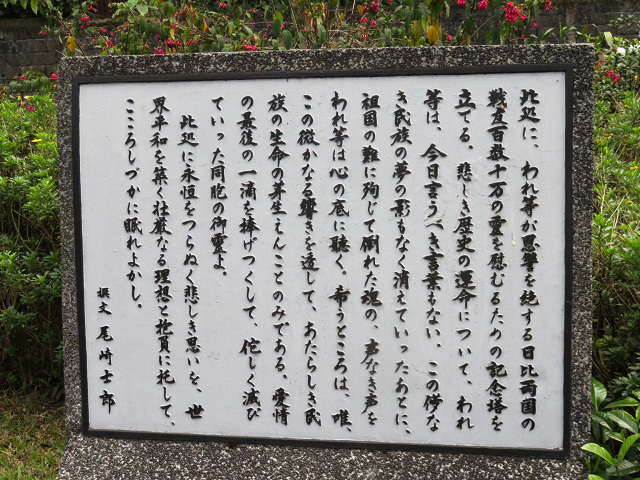 此処に、われ等が恩讐を絶する日比両国の
戦友百数十万の霊を慰むるための記念塔を
立てる。悲しき歴史の運命について、われ
等は、今日言うべき言葉もない。この儚な
き民族の夢の影もなく消えていったあとに、
祖国の難に殉じて倒れた魂の、声なき声を
われ等は心の底に聴く。希うところは、唯、
この微かなる響きを透して、あたらしき民
族の生命の芽生えんことのみである。愛情
の最後の一滴を捧げつくして、佗しく滅び
ていった同胞の御霊よ。
此処に永恒をつらぬく悲しき思いを、世
界平和を築く壮厳なる理想と抱負に托して、
こころしづかに眠れよかし。
撰文 尾崎士郎